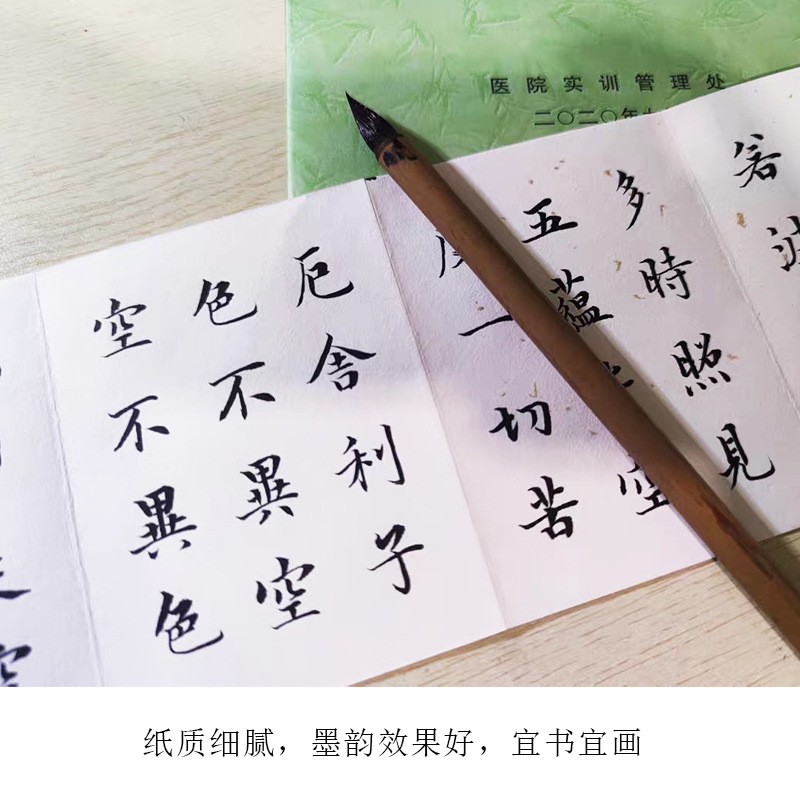 医院实训管理处
二〇二〇年
若波
多時照見
五蘊空
度一切苦
厄舍利子
色不異空
空不異色
纸质细腻，墨韵效果好，宜书宜画